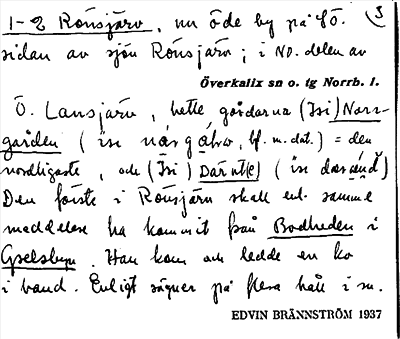 1-2 Rönsjärv, nu öde by på SÖ. 3
sidan av sjön Rönsjärv; i NO. delen av
Överkalix sn o. tg Norrb. l.
Ö. Lansjärv, hette gårdarna (Isi) Norr-
gården ( = den
nordligaste, och (Isi) Därnt(e)
Den förste i Rönsjärn skall enl. samme
meddelare ha kommit från Bodheden i
Gyselsbyn. Han kom och ledde en ko
i band. Enligt sägner på flera håll i sn.
EDVIN BRÄNNSTRÖM 1937